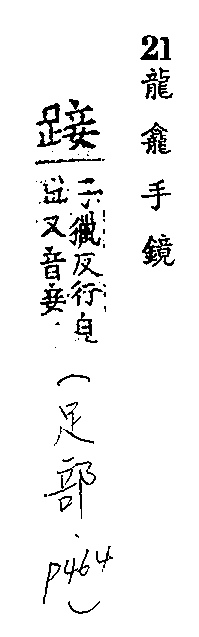 21龍龕手鏡
踥
獵反行皃
又音妾
(足部. p464)